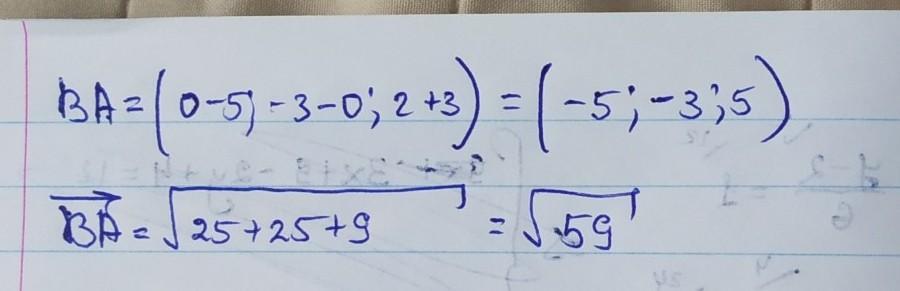 BA = (0-5; -3-0; 2+3) = (-5; -3; 5)
$\overrightarrow{BA}$ = √25+25+9 = √59